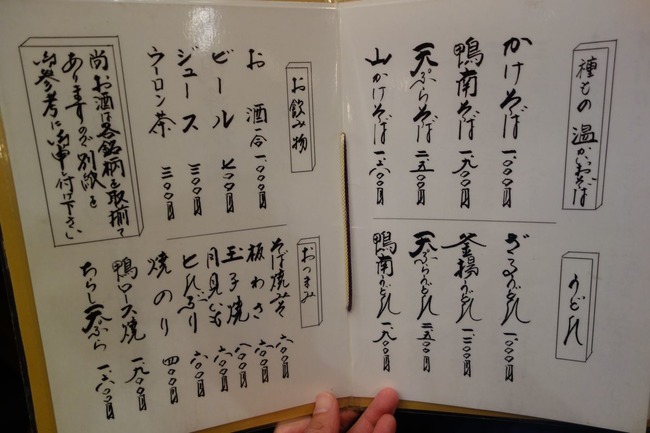 種もの 温かいおそば
かけそば 一、〇〇〇円
鴨南そば 一、九〇〇円
天ぷらそば 二、五〇〇円
山かけそば 一、六〇〇円
うどん
ざるうどん 一、〇〇〇円
釜揚うどん 一、二〇〇円
天ぷらうどん 二、五〇〇円
鴨南うどん 一、九〇〇円
お飲み物
お酒 一合 一、〇〇〇円
ビール 七〇〇円
ジュース 三〇〇円
ウーロン茶 三〇〇円
尚お酒は各銘柄を取揃て
ありますので別紙を
御参考に御申し付け下さい
おつまみ
そば焼みそ 六〇〇円
板わさ 六〇〇円
玉子焼 八〇〇円
月見いも 八〇〇円
七りぶり 六〇〇円
焼のり 四〇〇円
鴨ロース焼 一、九〇〇円
ちらし天ぷら 一、六〇〇円